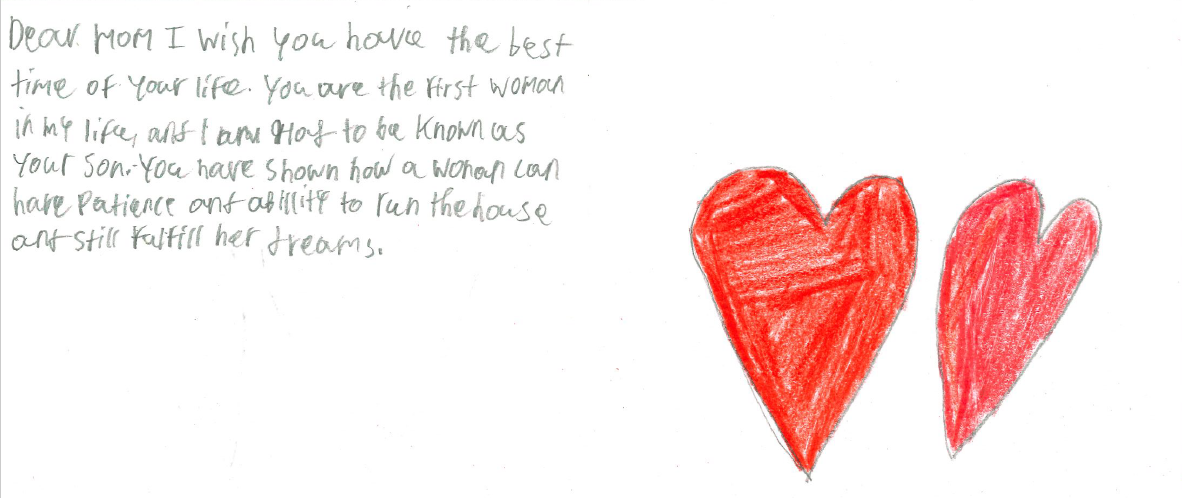 Dear Mom I wish you have the best
time of your life. You are the first woman
in my life, and I am to be known as
your son. You have shown how a woman can
have patience and abillity to run the house
and still fulfill her dreams.